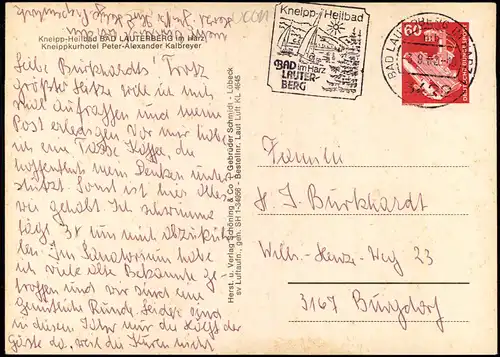 Kneipp-Heilbad BAD LAUTERBERG im Harz
Kneippkurhotel Peter-Alexander Kalbreyer
Liebe Burkhardts! Trotz
größter Hitze will ich mich
mal aufraffen und meine
Post erledigen. Vor mir habe
ich eine Tasse Kaffee, die
hoffentlich mein Denken unter
stützt. Sonst ist hier alles
wie gehabt. Ich schwimme
tägl. um mich abzuküh
len. Im Sanatorium habe
ich viele alte Bekannte ge
troffen und wir sind eine
gemütliche Runde. Leider sind
in diesem Jahr nur die Hälfte der
Gäste da, weil die Kuren nicht
Herst. u. Verlag Schöning & Co + Gebrüder Schmidt - Lübeck
sv Luftaufn., gen. SH 1-34656 - Bestellnr. Laut Luft KL 4645
Kneipp-Heilbad
BAD
im Harz
LAUTER-
BERG
BAD LAUTERBERG IM HARZ
60
Familie
H. J. Burkhardt
Wilh.-Henze-Weg 23
3167 Burgdorf